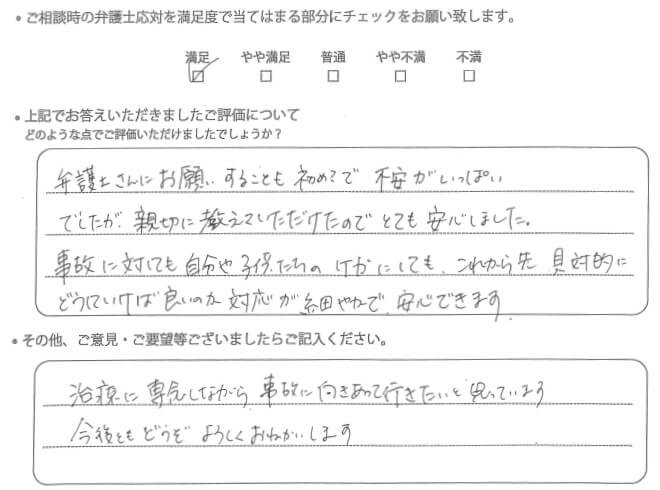 • ご相談時の弁護士応対を満足度で当てはまる部分にチェックをお願い致します。
満足 やや満足 普通 やや不満 不満
• 上記でお答えいただきましたご評価について
どのような点でご評価いただけましたでしょうか？
弁護士さんにお願いすることも初めてで不安がいっぱい
でしたが、親切に教えていただけたのでとても安心しました。
事故に対しても自分や子供たちのけがにしても、これから先 具対的に
どうしていけば良いのか対応が細やかで、安心できます。
• その他、ご意見・ご要望等ございましたらご記入ください。
治療に専念しながら、事故に向きあって行きたいと思っています
今後ともどうぞよろしくおねがいします